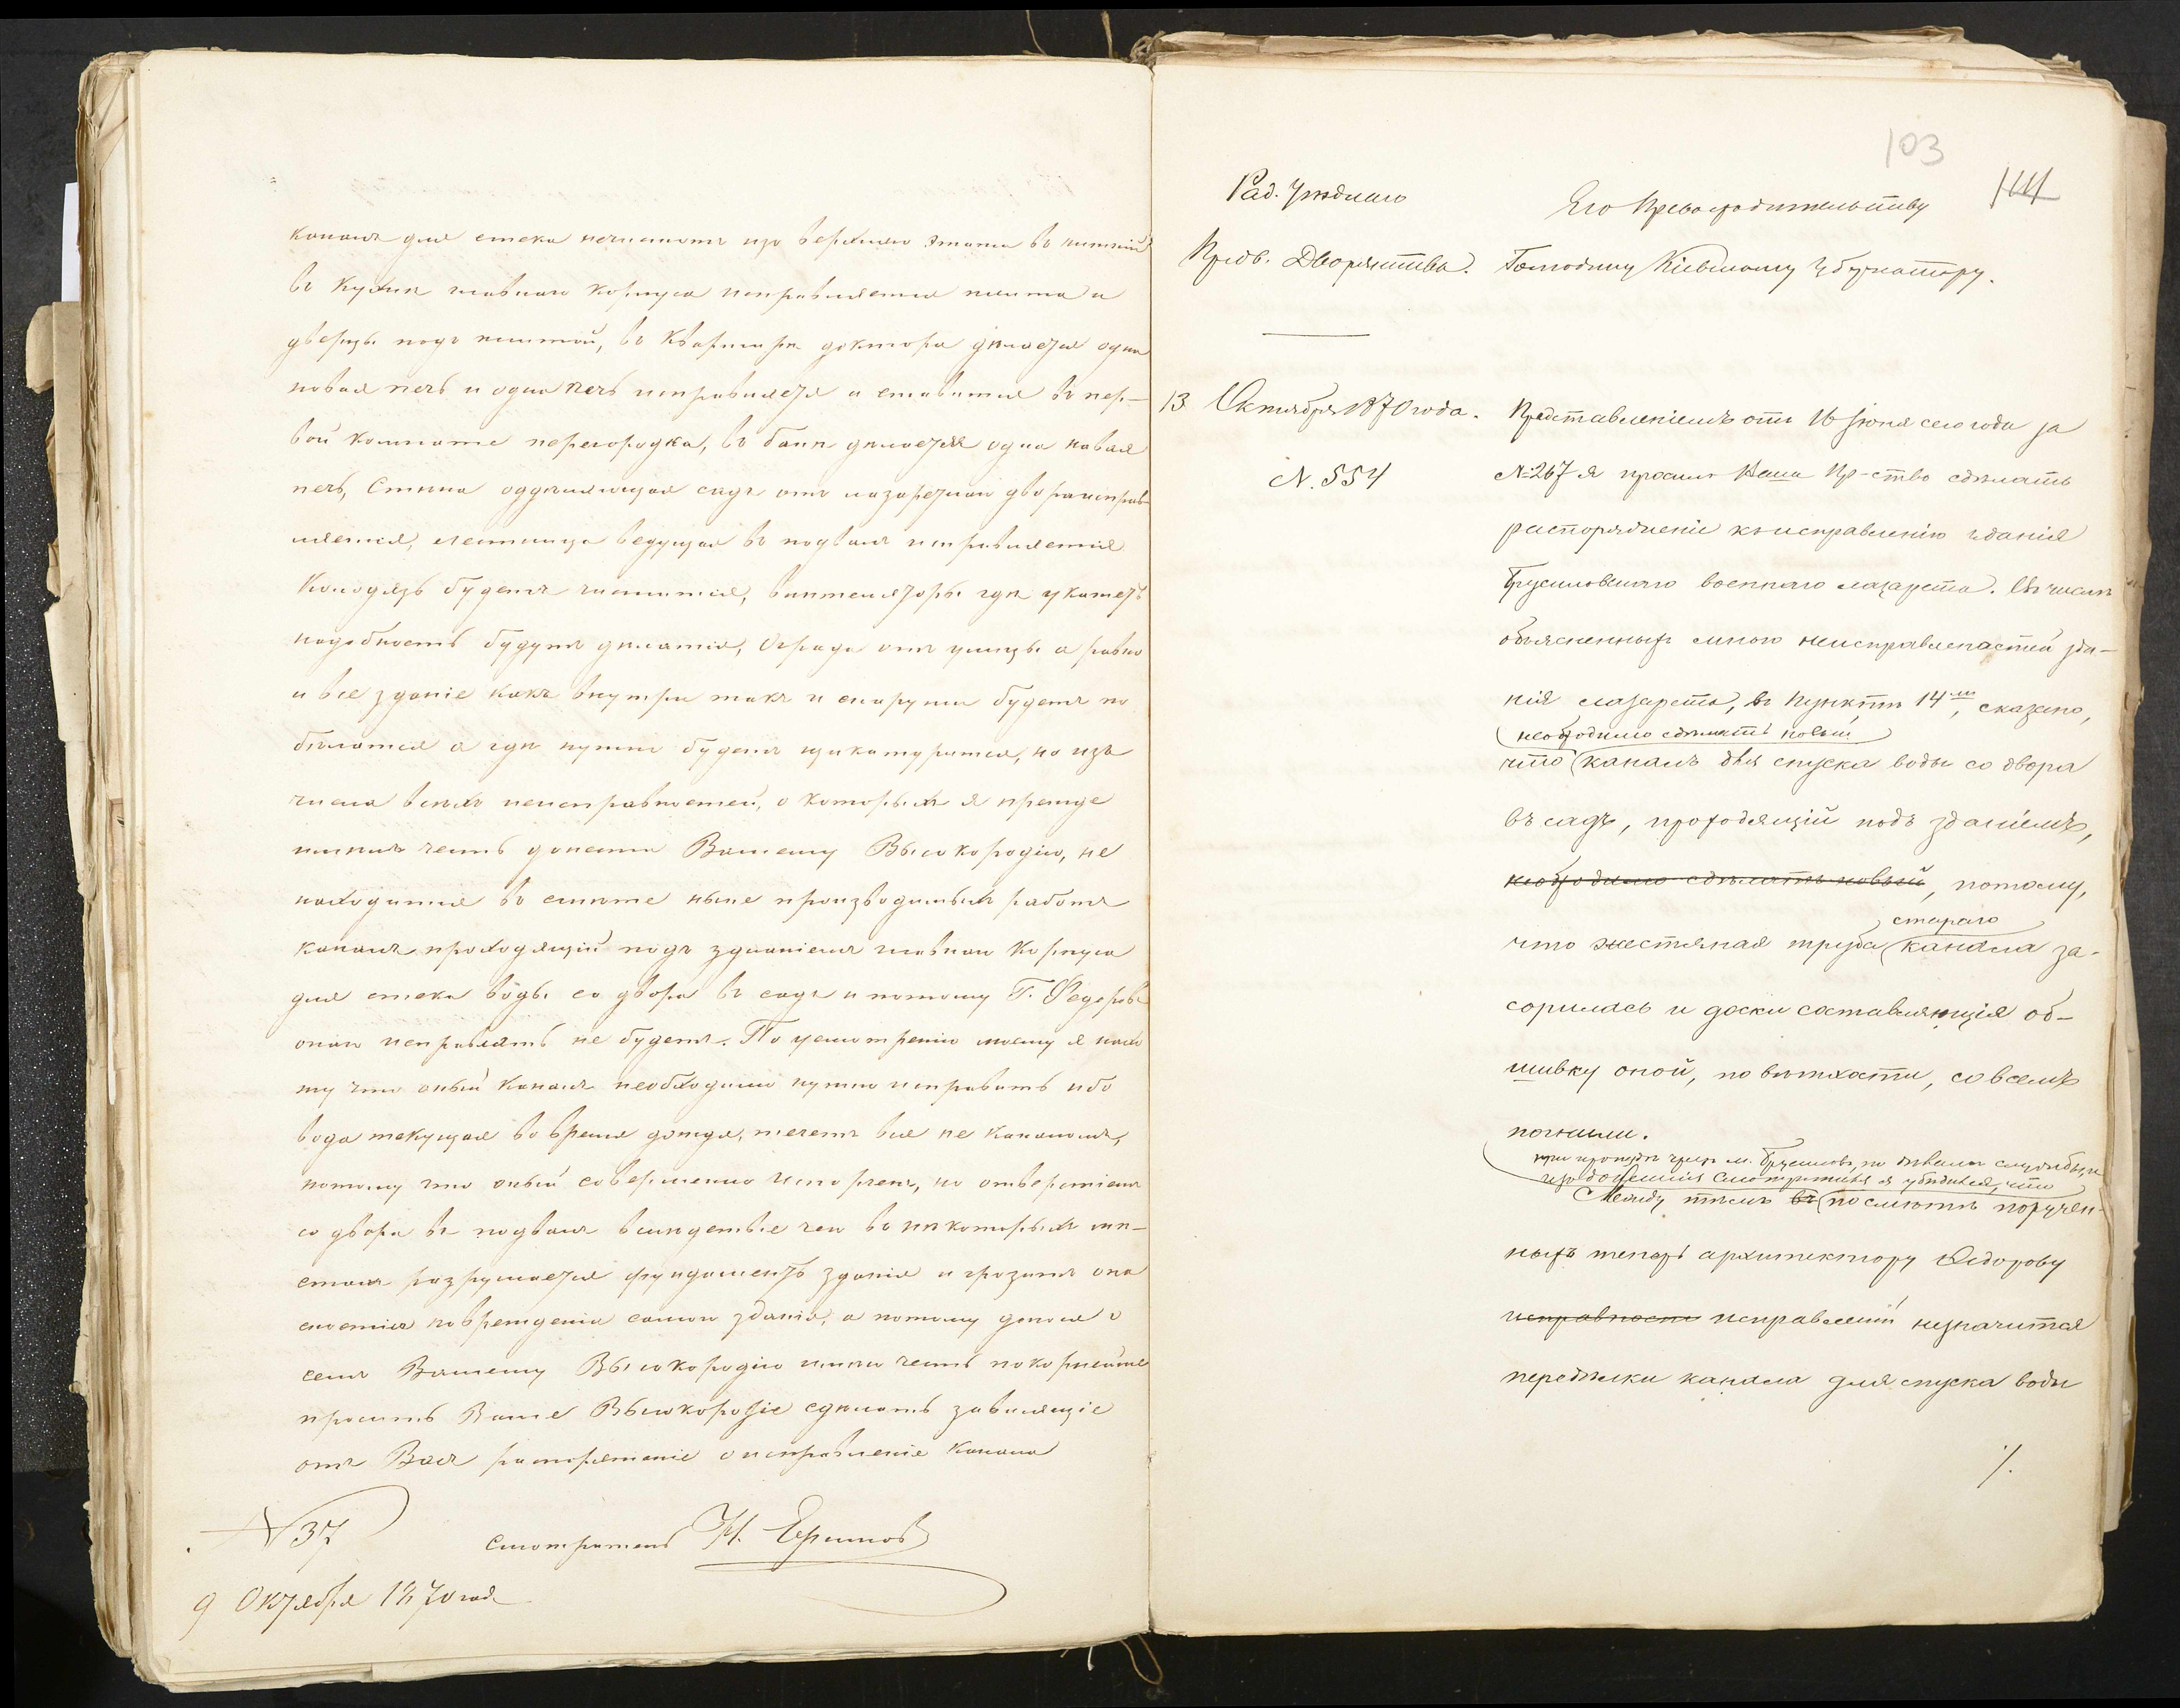 каналъ для стека нечистотъ изъ верхняго этажа въ нижній
въ Кухни главнаго корпуса исправляется плита и
дверцы подъ плитой, въ Квартирѣ доктора дѣлается одна
новая печь и одна печь исправляется и ставится въ пер-
вой комнате перегородка, въ банѣ дѣлается одна новая
печь, Стѣна отдѣляющая садъ отъ лазаретнаго двора исправ
ляется, лестница ведущая въ подвалъ исправляется
Колодязь будетъ чистится, вентеляторы гдѣ укажетъ
надобность будутъ дѣлатся, Ограда отъ улицы а равно
и все зданіе какъ внутри такъ и снаружи будетъ по
бѣлатся а гдѣ нужно будетъ щикатурится, но изъ
числа всѣхъ неисправностей, о которыхъ я прежде
имѣлъ честь донести Вашему Высокородію, не
находится въ смѣте ныне производимыхъ работъ
каналъ проходящій подъ зданіемъ главнаго Корпуса
для стека воды со двора въ садъ и потому Г. Федоровъ
онаго исправлять не будетъ. По усмотренію моему я нахо
жу что оный Каналъ необходимо нужно исправить ибо
вода текущая во время дождя, течетъ вся не каналомъ,
потому что оный совершенно испорченъ, но отверстіемъ
со двора въ подвалъ вслѣдствіе чего въ нѣкоторыхъ мѣ-
стахъ разрушается фундаментъ зданія и грозитъ опа
сностію поврежденія самого зданія, а потому донося о
семъ Вашему Высокородію имѣю честь покорнейше
просить Ваше Высокородіе сдѣлать зависящіе
отъ Васъ распоряженіе о исправленіе Канала
№ 37
смотритель Н. Ефимовъ
9 Октября 1870 года
103
Рад. Уѣзднаго
Предв. Дворянства.
13 Октября 1870 года.
№ 554
Его Превосходительству
Господину Кіевскому Губернатору.
Представленіемъ отъ 16 Іюня сего года за
№ 267 я просилъ Ваше Пр-ство сдѣлать
распоряженіе къ исправленію зданія
Брусиловскаго военнаго лазарета. Въ числѣ
объясненныхъ мною неисправностей зда-
нія лазарета, въ пунктѣ 14мъ, сказано,
необходимо сдѣлать новый
что каналъ для спуска воды со двора
въ садъ, проходящій подъ зданіемъ,
необходимо сдѣлать новый, потому,
стараго
что жестяная труба канала за-
сорилась и доски составляющія об-
шивку оной, по ветхости, совсемъ
погнили.
при проѣздѣ чрезъ м. Брусиловъ, по дѣламъ службы, и
изъ донесенія Смотрителя я убѣдился, что
Между тѣмъ въ по смѣтѣ поручен-
ныхъ теперь архитектору Федорову
исправности исправленій незначится
передѣлки канала для спуска воды